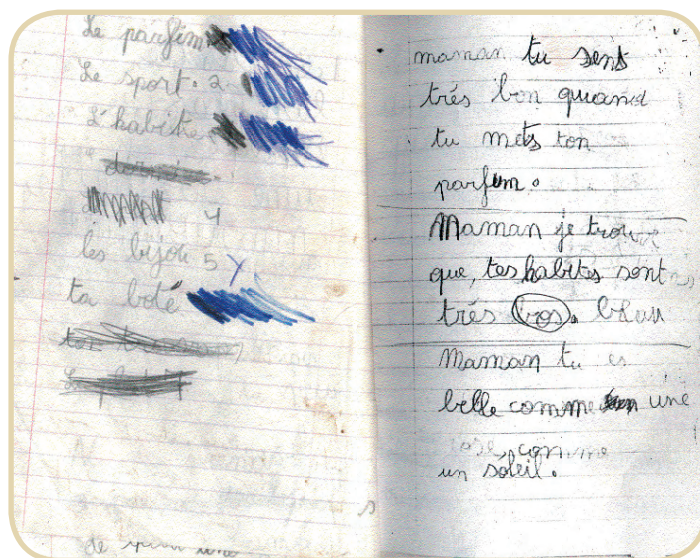 Le parfum
Le sport. 2
L'habite
4
les bijou 5
ta boté
de
maman tu sent
très bon quand
tu mets ton
parfum.
Maman je trouve
que, tes habites sont
très bos. beau
Maman tu es
belle comme une
rose comme
un soleil.